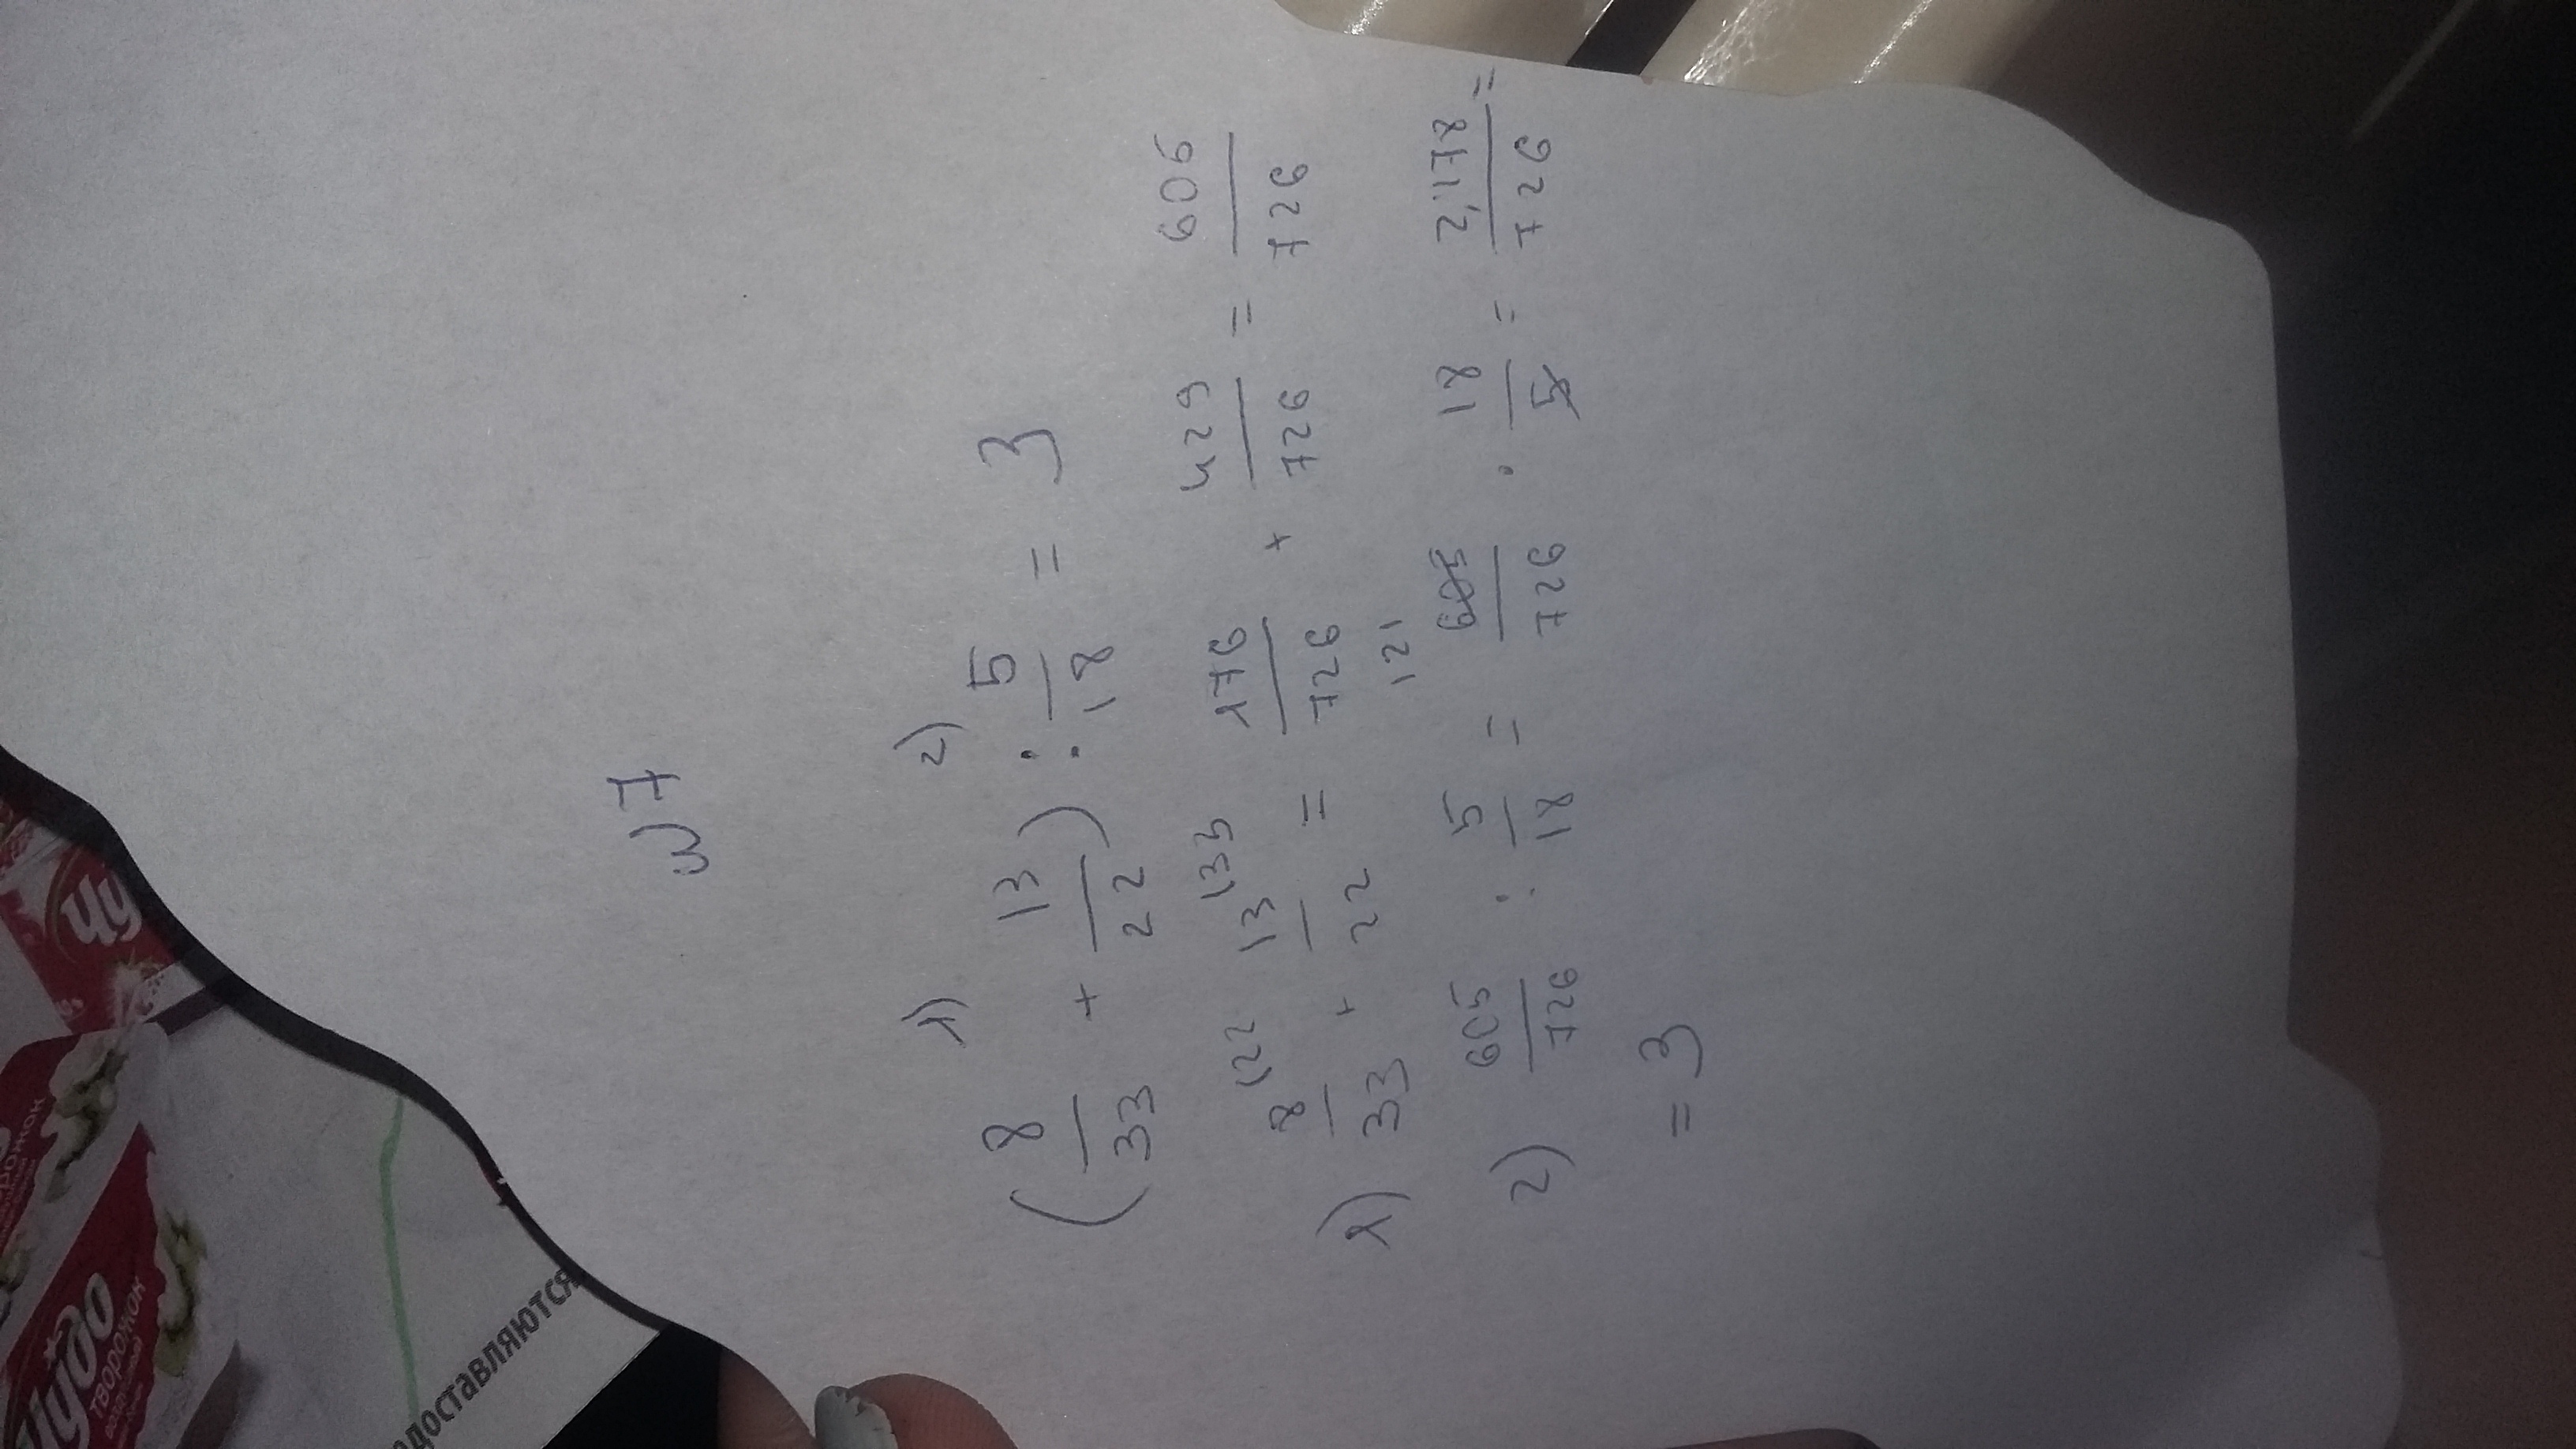 №7
1) 2)
(8/33 + 13/22) : 5/18 = 3
1) 8/33 |22 + 13/22 |33 = 176/726 + 429/726 = 605/726
2) 605/726 : 5/18 = 121 605/726 · 18/5 = 2,178/726 =
= 3
Чудо
творожок
Чу
доставляются